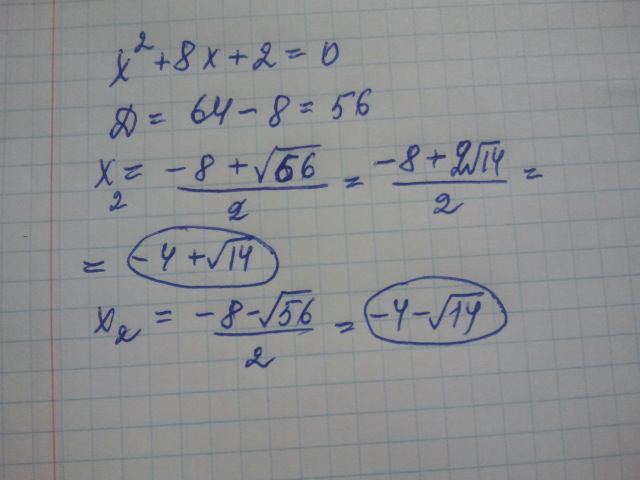 x² + 8x + 2 = 0
D = 64 - 8 = 56
x₂ = (-8 + √56)/2 = (-8 + 2√14)/2 =
= -4 + √14
x₂ = (-8 - √56)/2 = -4 - √14